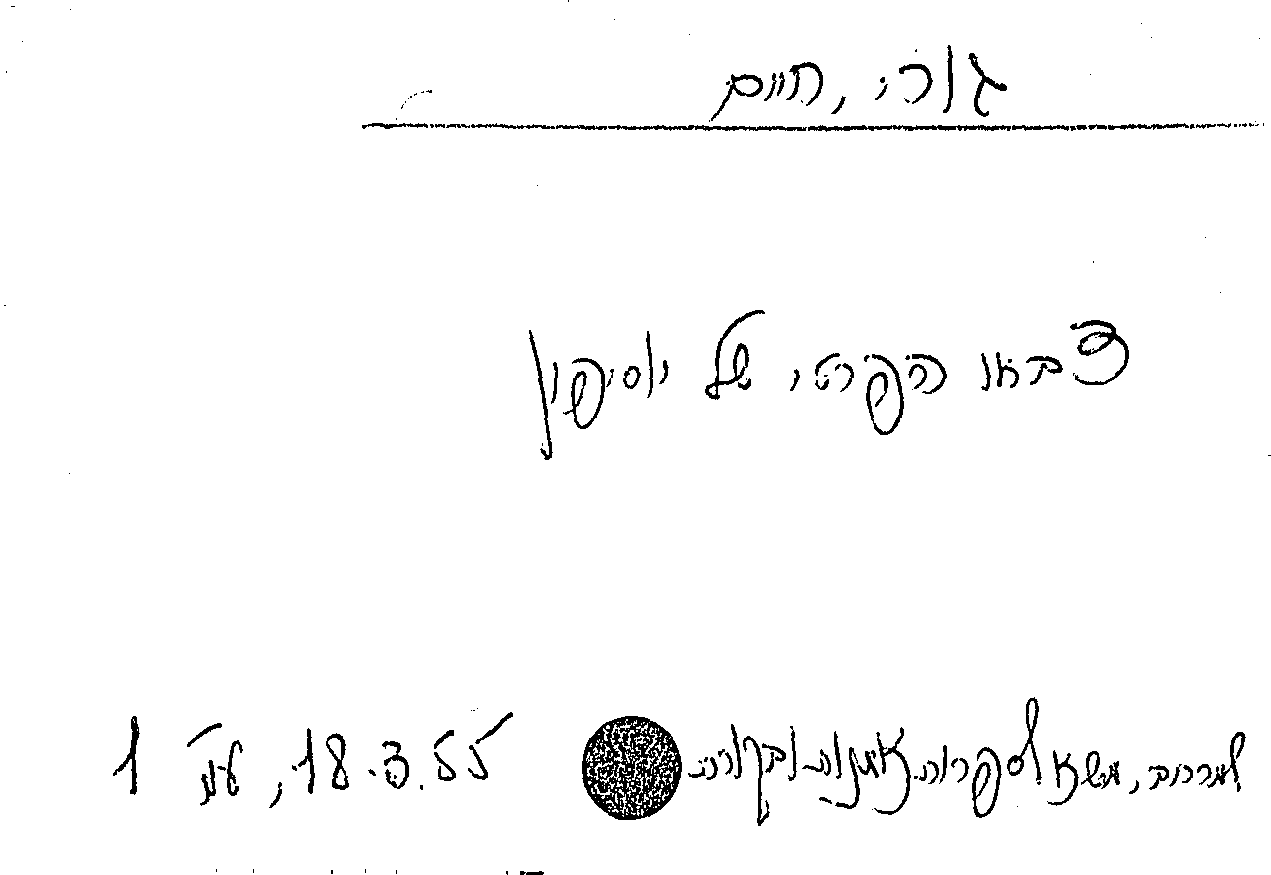 גורי, חיים
צבאו הפרטי של יוסיפון
למרחב, משא לספרות אמנות ובקורת 18.3.55, עמ' 1